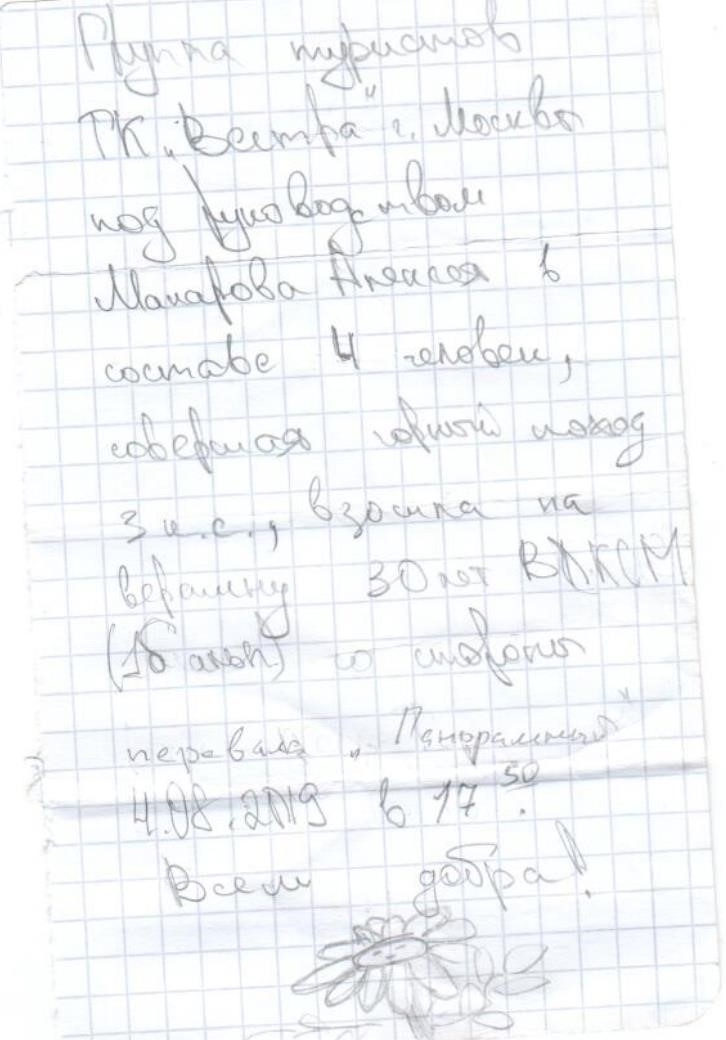 Группа туристов
ТК „Вестра" г. Москвы
под руководством
Макарова Алексея в
составе 4 человек,
совершая горный поход
3 к.с., взошла на
вершину 30 лет ВЛКСМ
(1Б альп) со стороны
перевала „Панорамный"
4.08.2019 в 17 50.
Всем добра!